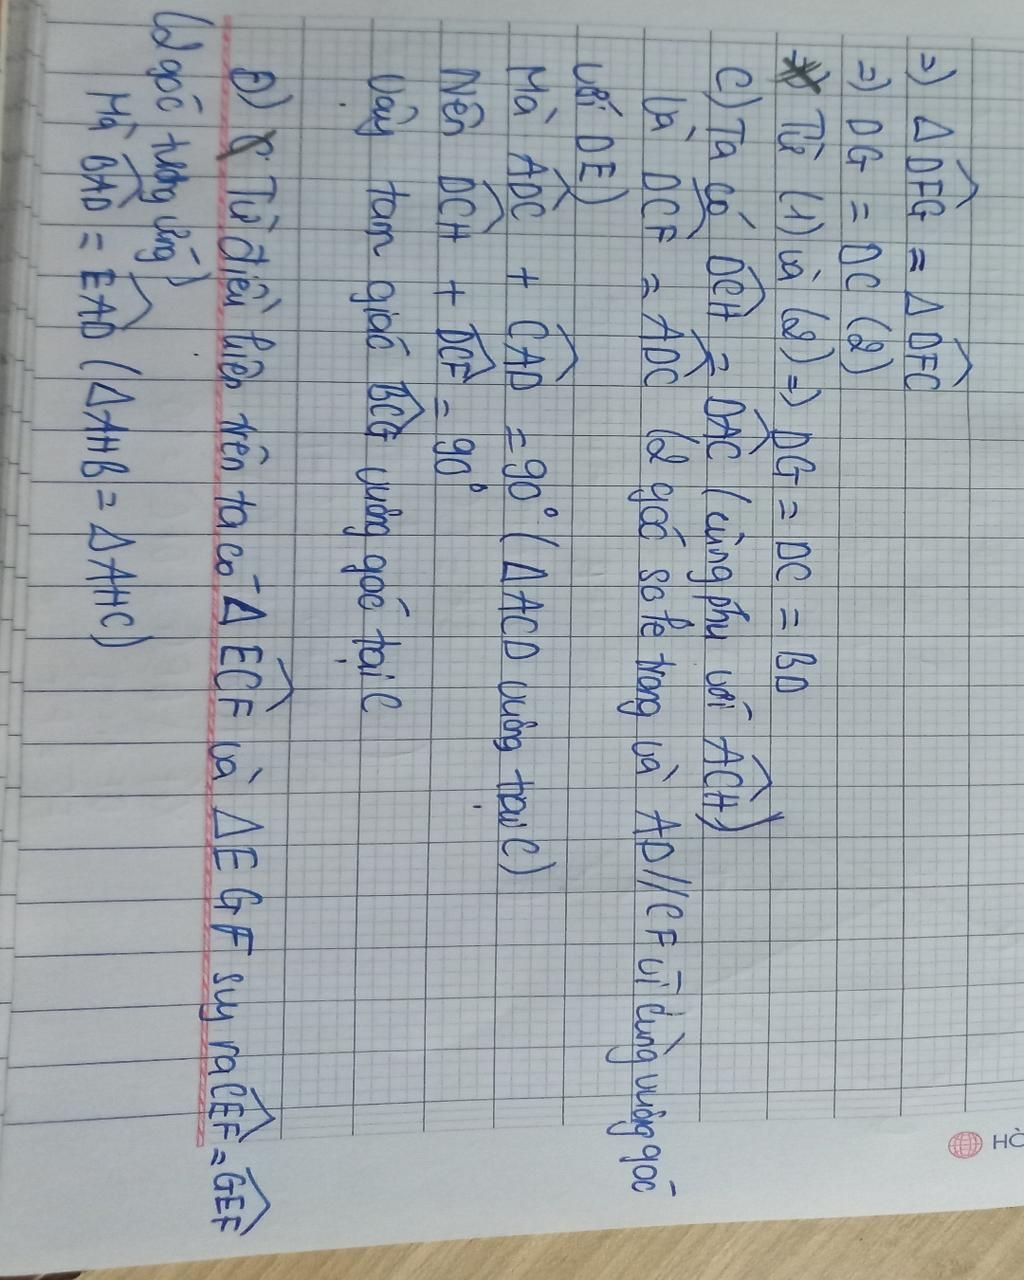 =) Δ DFG = Δ DFC
=) DG = DC (2)
Từ (1) và (2) =) DG = DC = BD
C) Ta có DCH = DAC (cùng phụ với ACH)
Và DCF = ADC (2 góc so le trong và AD//CF vì cùng vuông góc
với DE)
Mà ADC + CAD = 90° (ΔACD vuông tại C)
Nên DCH + DCF = 90°
Vậy tam giác BCG vuông góc tại C
Đ) Từ điều kiện trên ta có Δ ECF và Δ EGF suy ra CEF = GEF
(2 góc tương ứng)
Mà BAD = EAD (ΔAHB = ΔAHC)
HÒ